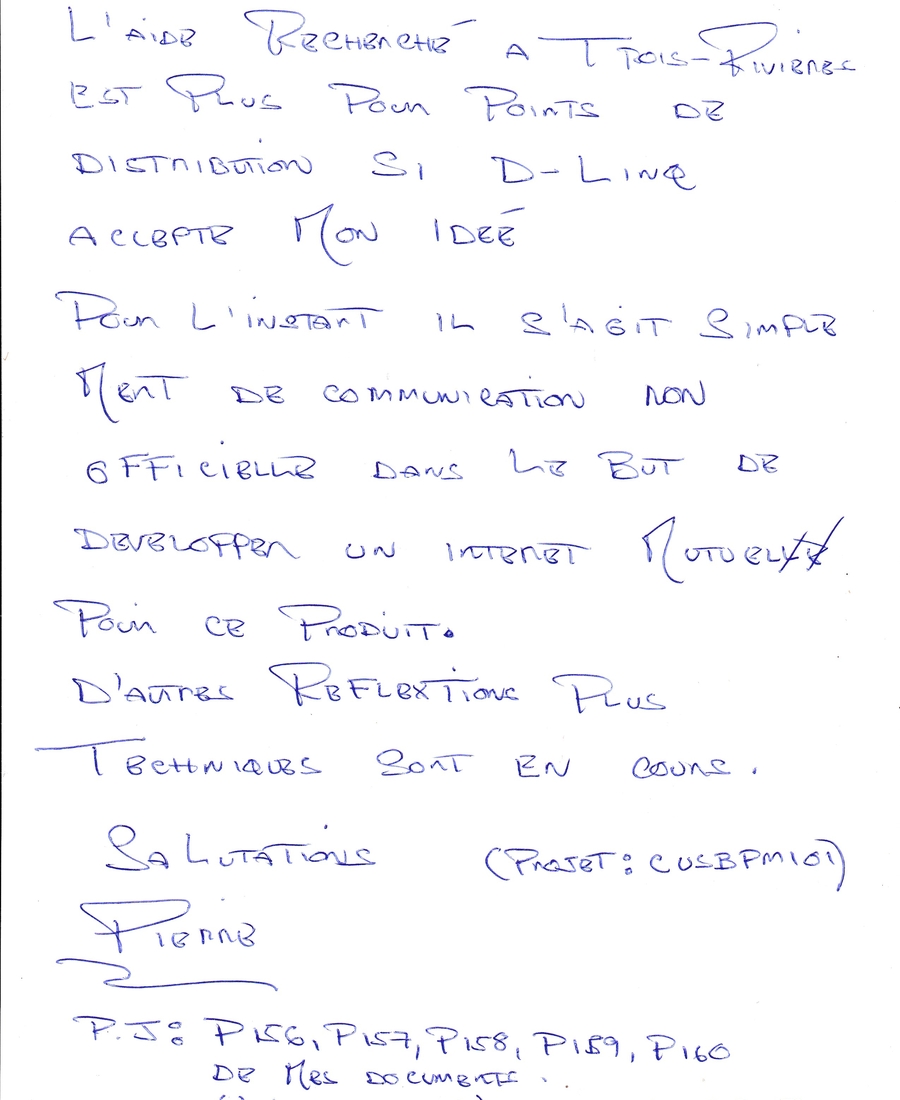 L'AIDE RECHERCHÉ A TROIS-RIVIERES
EST PLUS POUR POINTS DE
DISTRIBUTION SI D-LINQ
ACCEPTE MON IDEÉ
POUR L'INSTANT IL S'AGIT SIMPLE
MENT DE COMMUNICATION NON
OFFICIELLE DANS LE BUT DE
DEVELOPPER UN INTERET MUTUEL
POUR CE PRODUIT.
D'AUTRES REFLEXTIONS PLUS
TECHNIQUES SONT EN COURS.
SALUTATIONS (PROJET: CUSBPM101)
PIERRE
P.J: P156, P157, P158, P159, P160
DE MES DOCUMENTS.